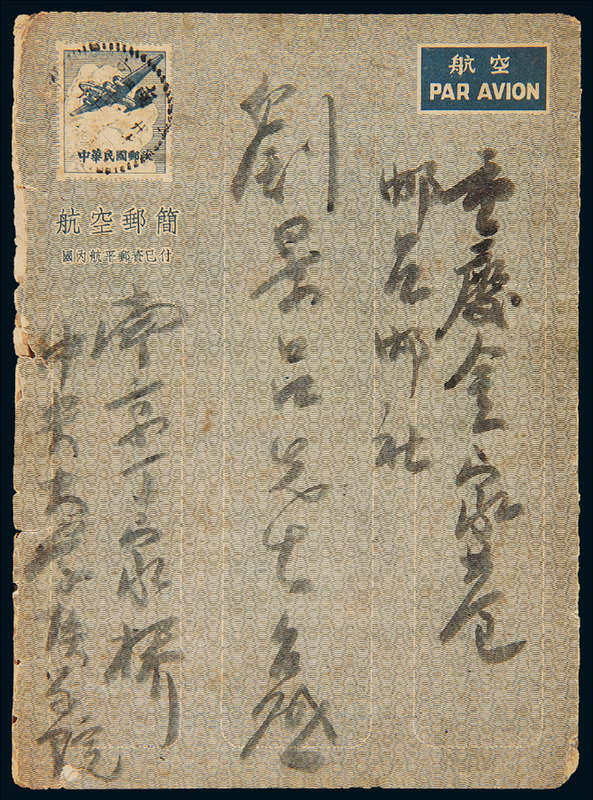 航空
PAR AVION
重慶金家巷
邮邮社
劉景吕先生台啟
中華民國郵政
航空郵簡
國內航平郵資已付
南京丁家桥
中央大學医学院